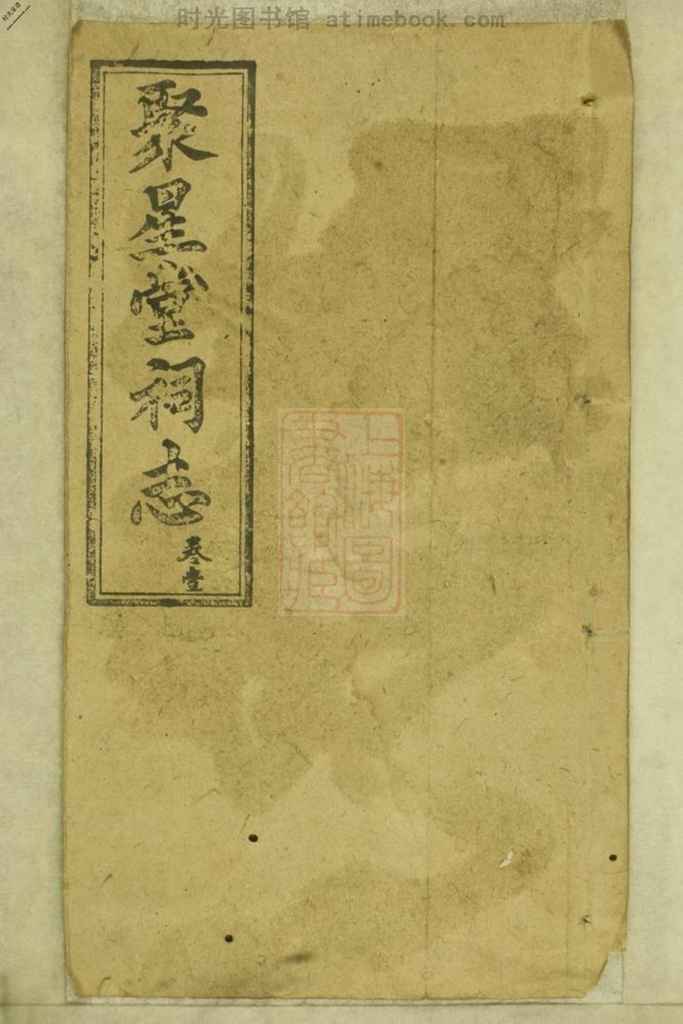 时光图书馆 atimebook.com
聚星堂祠志
卷壹